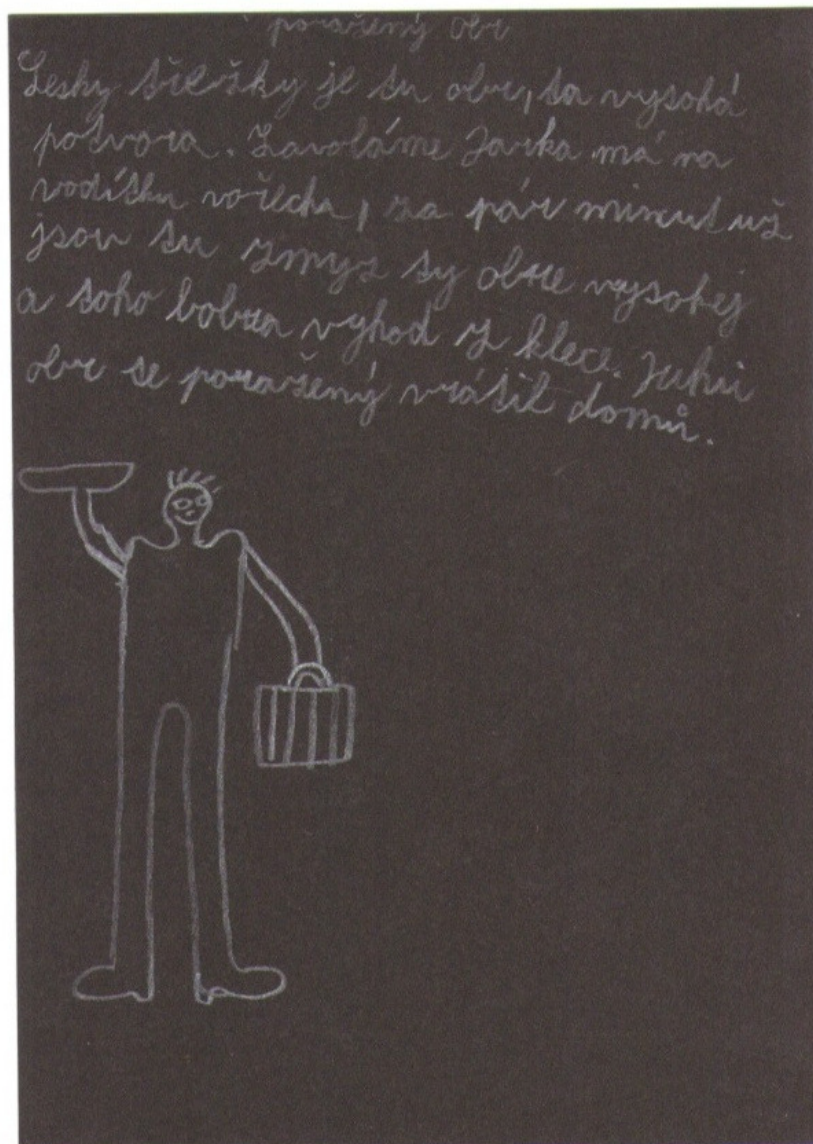 poražený obr
Lesky třesky je tu obr, ta vysoká
potvora. Zavoláme Jarka má na
vodítku vořecha, za pár minut už
jsou tu zmyz ty obre vysokej
a toho bobra vyhod z klece. Juhů
obr se poražený vrátil domů.